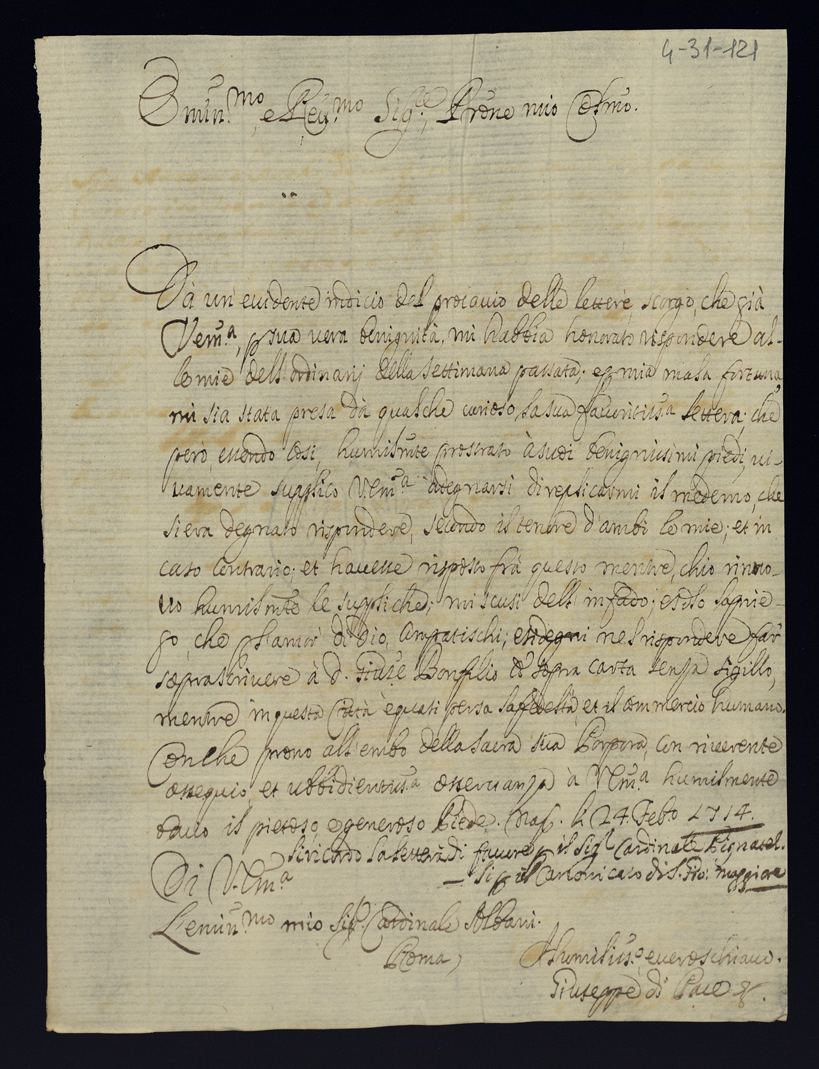 4-31-121
Emin.mo, e Reu.mo Sig.re, Prōne mio Col.mo.
Dà un' euidente indicio del procaccio delle lettere, scorgo, che già
V.em.a, p sua uera benignità, mi habbia honorato rispondere al-
le mie dell' ordinarj della settimana passata; e p mia mala fortuna,
mi sia stata presa dà qualche curioso, la sua fauoritiss.a lettera; che
però, essendo così, humilm̃te prostrato à suoi benignissimi piedi, ui-
uamente supplico V.Em.a à degnarsi di replicarmi il medemo, che
si era degnato rispondere, secondo il tenore d'ambi le mie; et in
caso contrario; et hauesse risposto frà questo mentre, ch'io rinno-
uo humilm̃te le suppliche; mi scusi dell' infado; e solo la prie-
go, che p l'amor di Dio, compatischi; e si degni nel rispondere far
soprascriuere à D. Gius.e Bonfilio sopra carta senza sigillo,
mentre in questa Città è quasi persa la fedeltà, et il commercio humano.
Con che prono all' embo della sacra sua Porpora, con riuerente
ossequio, et ubbidientiss.a osseruanza à V.Em.a humilmente
bacio il pietoso, e generoso Piede. Nap. li 24. Feb.o 1714.
Si ricordi la lettera di fauore p il Sig.r Cardinale Pignatel.
Di V.Em.a
— li p il Canonicato di S. Gio: Maggiore
L'emin.mo mio Sig.r Cardinale Albani.
Roma,
Humiliss.o e uero schiauo.
Giuseppe di Pace